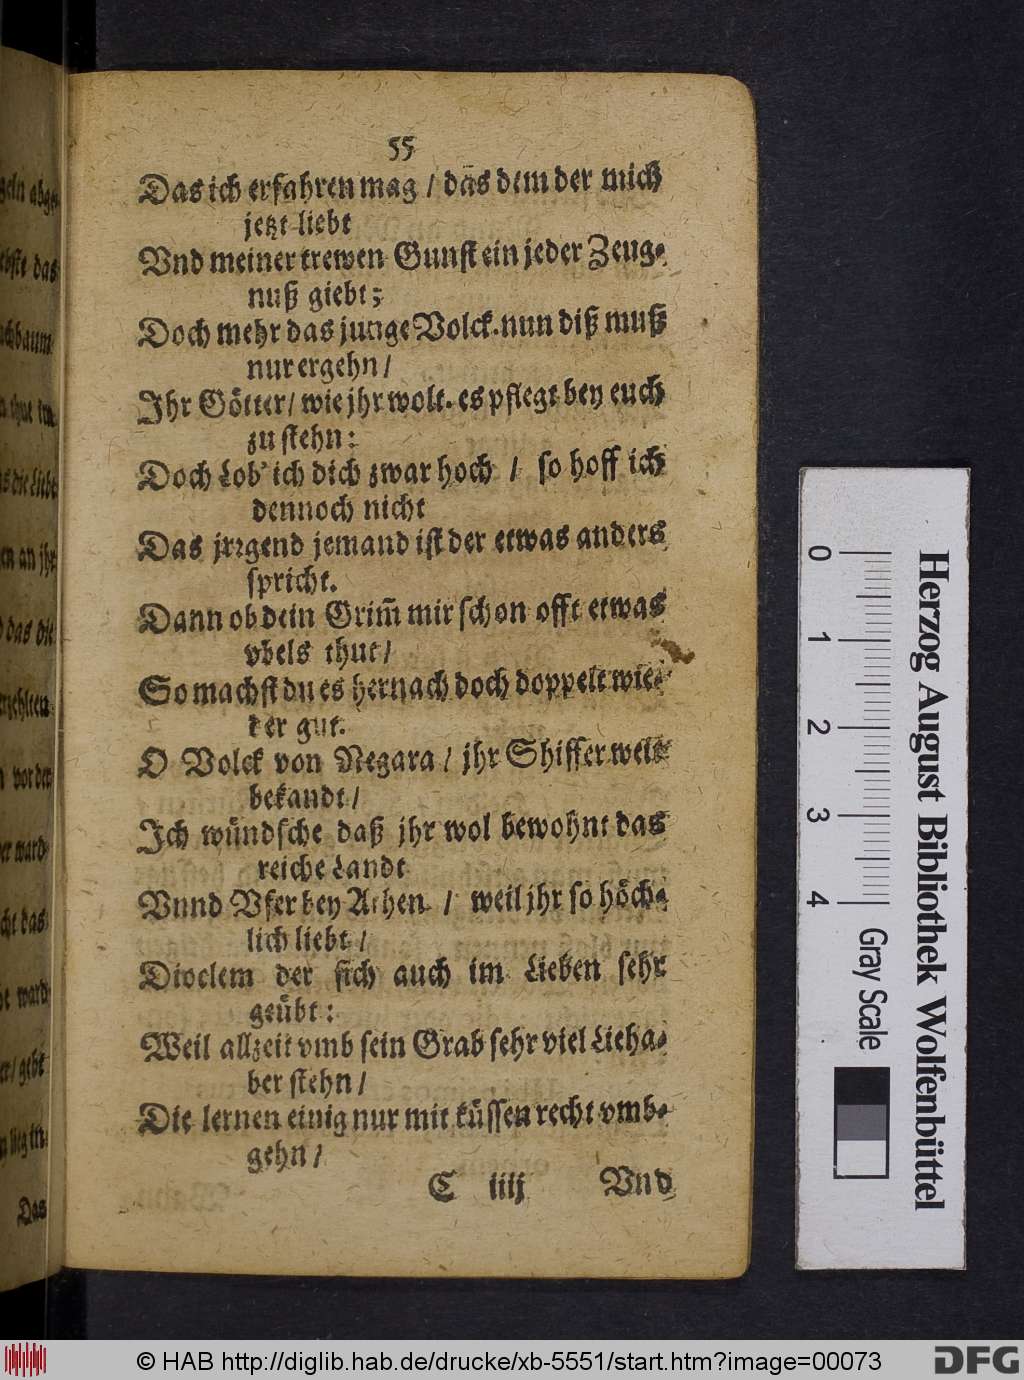 55
Das ich erfahren mag / das dem der mich
jetzt liebt
Vnd meiner trewen Gunst ein jeder Zeug-
nuß giebt;
Doch mehr das junge Volck. nun diß muß
nur ergehn /
Ihr Götter / wie jhr wolt. es pflegt bey euch
zu stehn:
Doch Lob' ich dich zwar hoch / so hoff ich
dennoch nicht
Das jrrgend jemand ist der etwas anders
spricht.
Dann ob dein Grim̃ mir schon offt etwas
vbels thut /
So machst du es hernach doch doppelt wie-
der gut.
O Volck von Negara / jhr Shiffer welt
bekandt /
Ich wündsche daß jhr wol bewohnt das
reiche Landt
Vnnd Vfer bey Athen / weil jhr so höch-
lich liebt /
Dioclem der sich auch im Lieben sehr
geübt:
Weil allzeit vmb sein Grab sehr viel Lieha-
ber stehn /
Die lernen einig nur mit küssen recht vmb-
gehn /
C iiij Vnd
abge
das
baum
thut im
die Liebe
en an jhr
das die
vor der
ward
das
ward
gebt
Das
0 1 2 3 4
Herzog August Bibliothek Wolfenbüttel
Gray Scale
© HAB http://diglib.hab.de/drucke/xb-5551/start.htm?image=00073
DFG